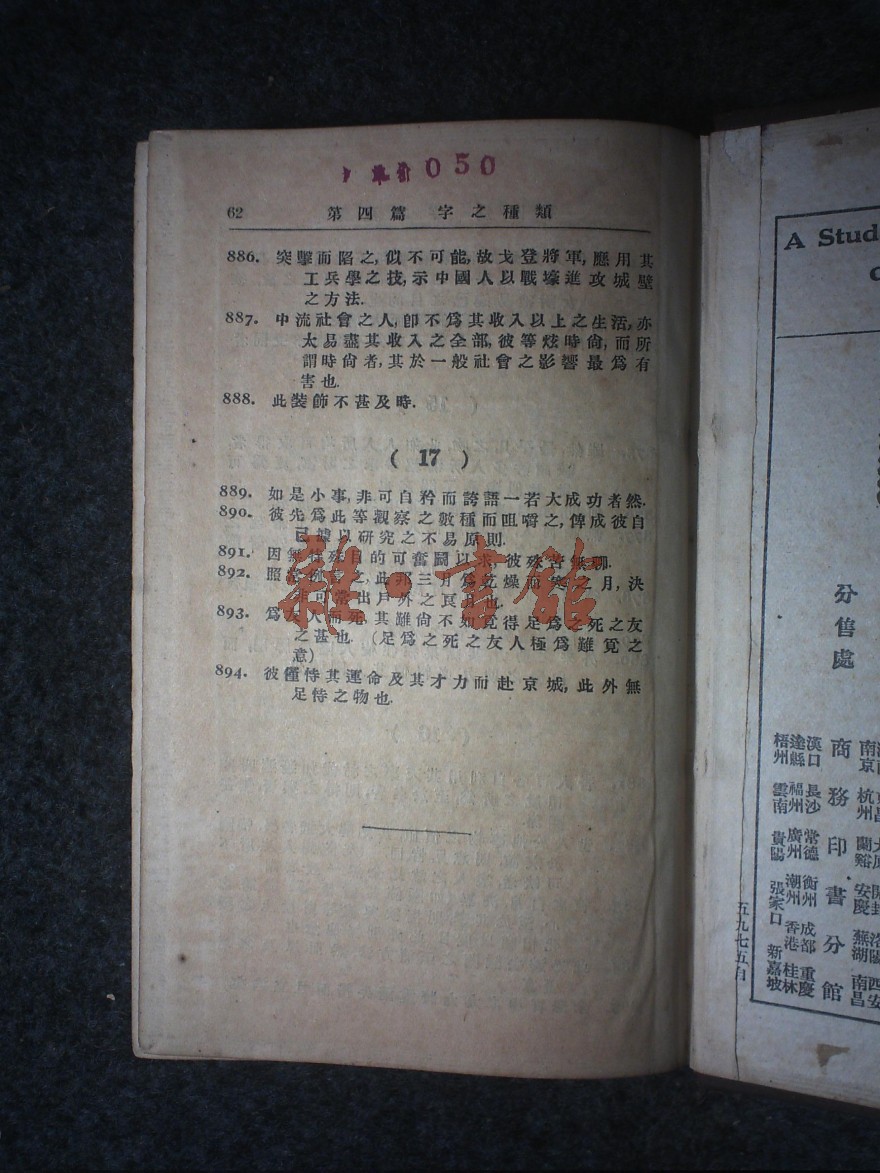 單价 050
62 第四篇 字之種類
886. 突擊而陷之, 似不可能, 故戈登將軍, 應用其
工兵學之技, 示中國人以戰壕進攻城壁
之方法.
887. 中流社會之人, 卽不爲其收入以上之生活, 亦
太易盡其收入之全部, 彼等炫時尙, 而所
謂時尙者, 其於一般社會之影響最爲有
害也.
888. 此裝飾不甚及時.
( 17 )
889. 如是小事, 非可自矜而誇語一若大成功者然.
890. 彼先爲此等觀察之數種而咀嚼之, 俾成彼自
己據以研究之不易原則.
891. 因無特殊目的可奮鬭以求, 彼殊苦無聊.
892. 照常例言之, 此邦三月爲乾燥而寒之月, 決
非可常出戶外之月也.
893. 爲友人而死, 其難尙不如覓得足爲之死之友
之甚也. (足爲之死之友人極爲難覓之
意)
894. 彼僅恃其運命及其才力而赴京城, 此外無
足恃之物也.
雜·書館
A Stud
分售處
商務印書分館
漢口 長沙 常德 衡州 成都 重慶
達縣 福州 廣州 潮州 香港 桂林
梧州 雲南 貴陽 張家口 新嘉坡
南京 杭州 蘭谿 安慶 蕪湖 南昌
五九七五自